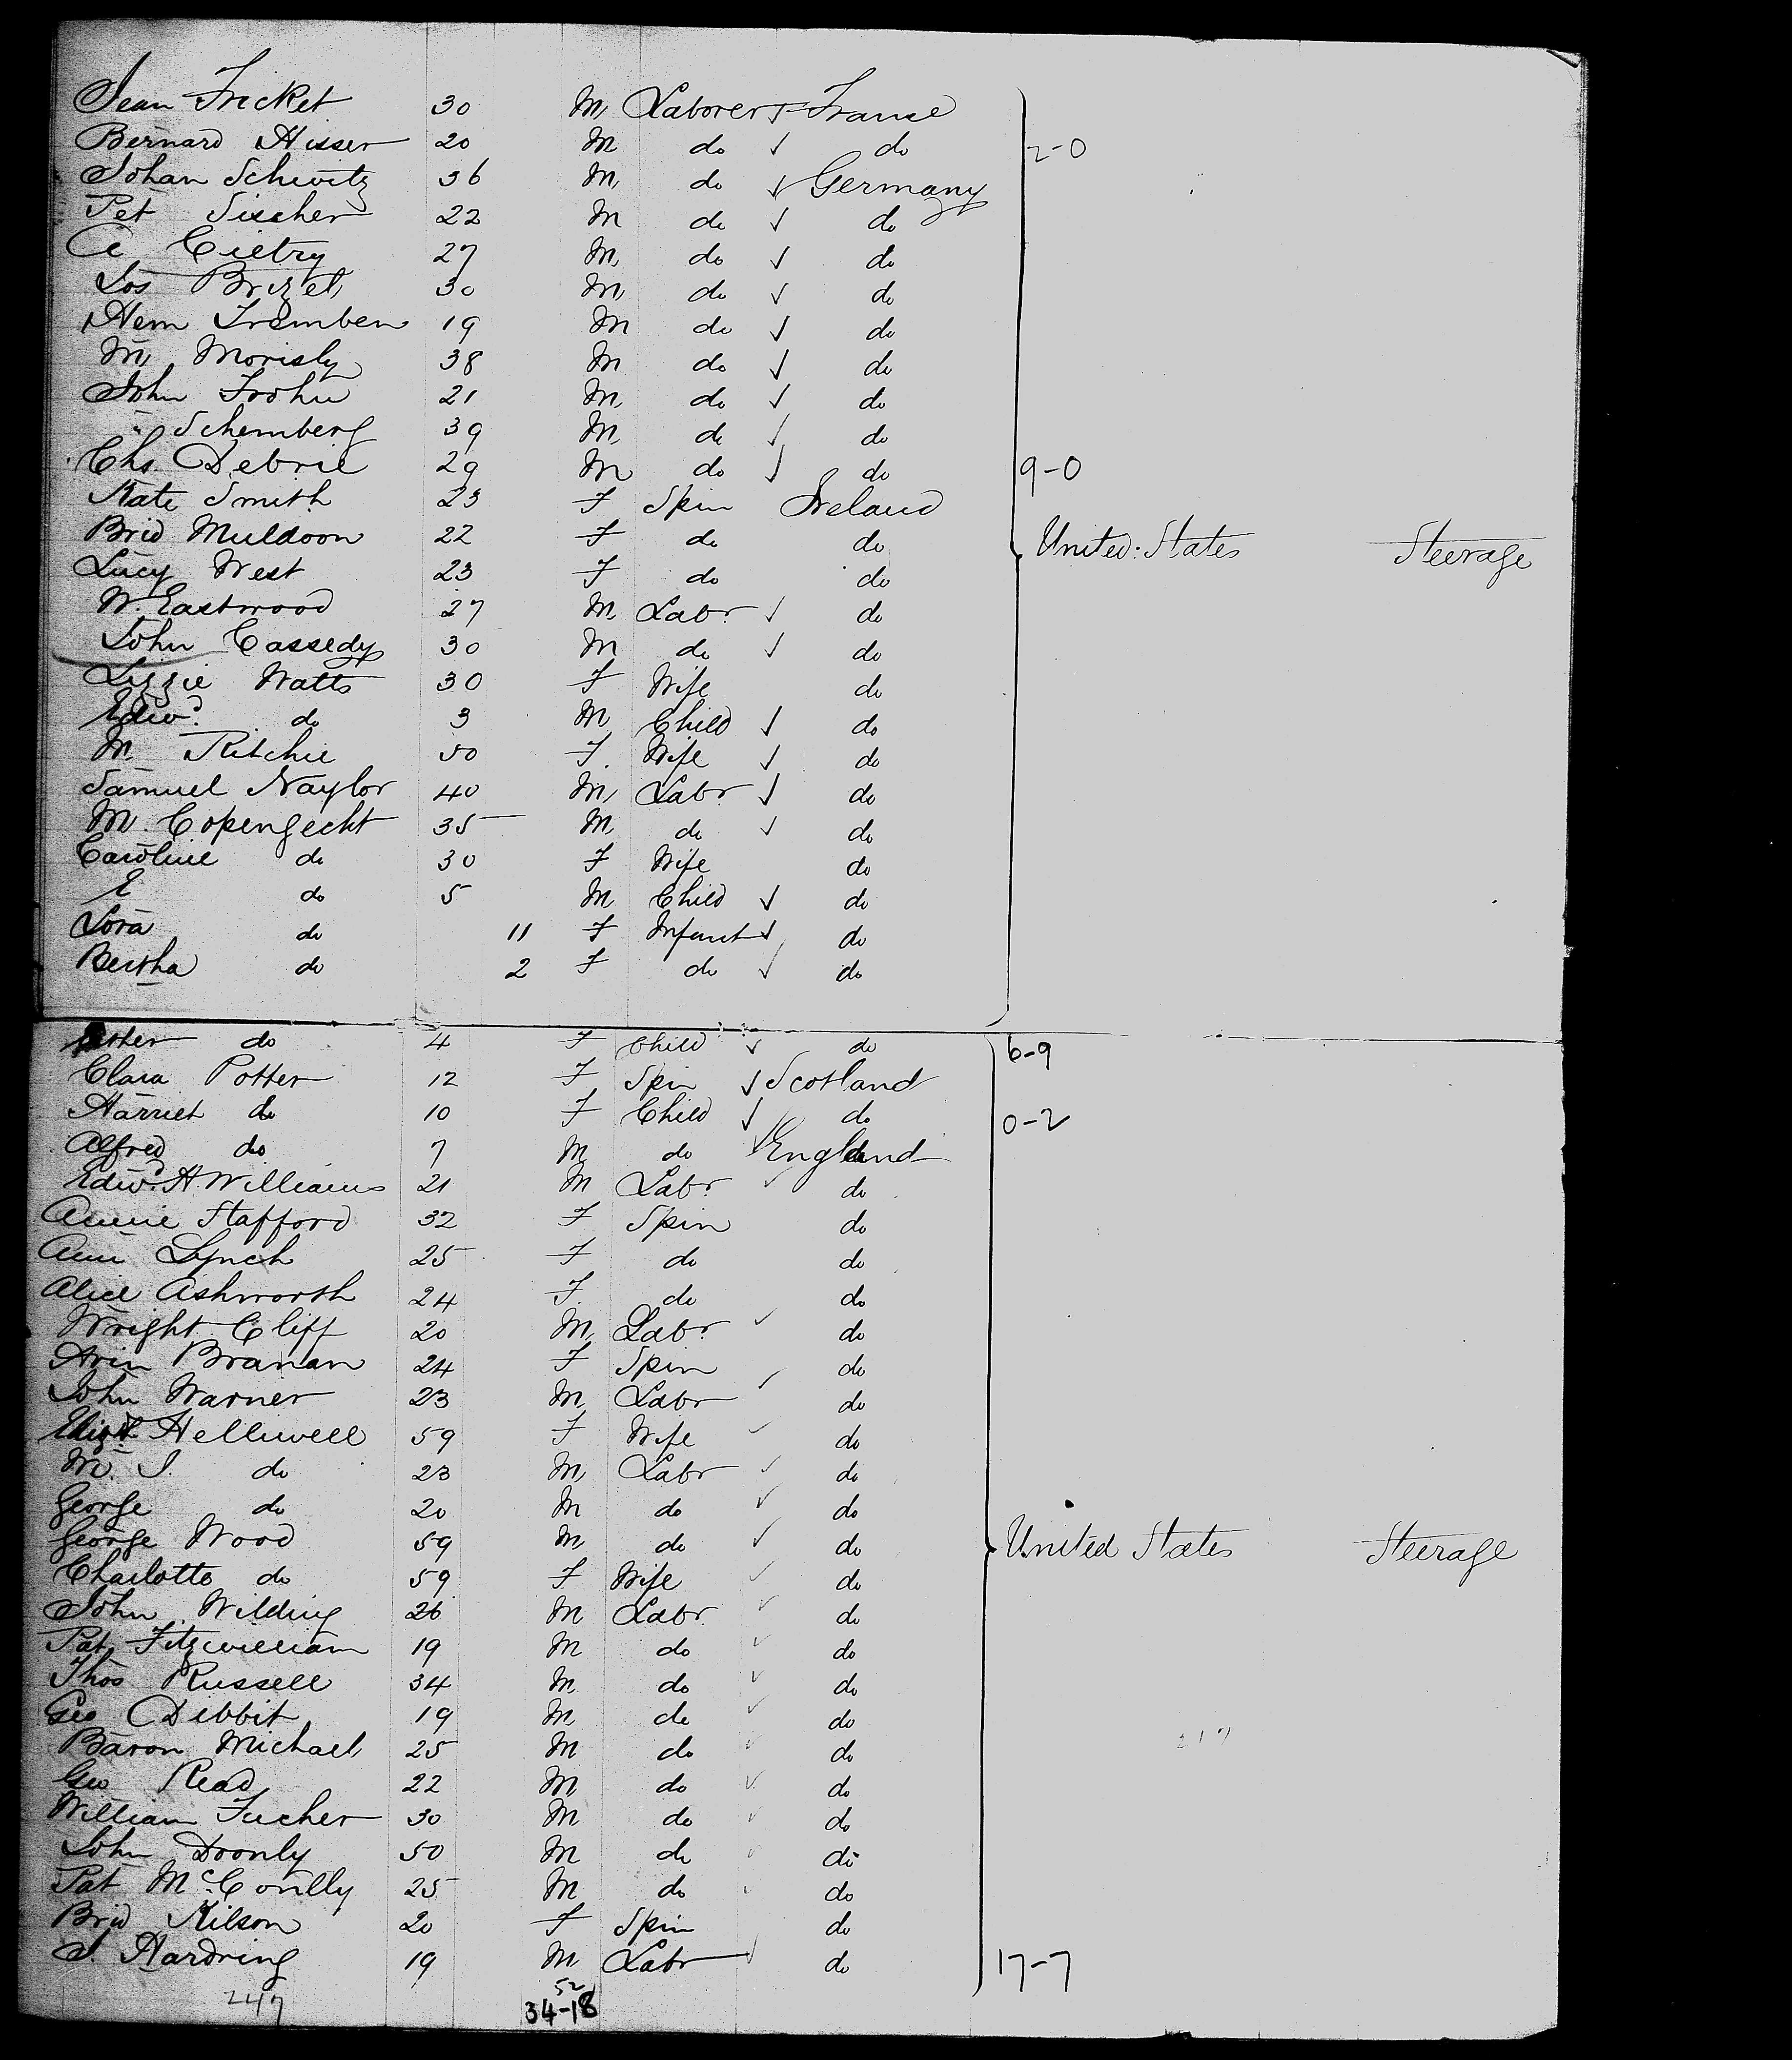 Jean Fricket 30 M Laborer France
Bernard Hisser 20 M do do 2-0
Johan Schwitz 36 M do Germany
Pet Sischer 22 M do do
A Cietry 27 M do do
Jos Brizet 30 M do do
Hem Tremben 19 M do do
M Morisly 38 M do do
John Frohn 21 M do do
" Schemberg 39 M do do
Chs. Debrie 29 M do do 9-0
Kate Smith 23 F Spin Ireland
Brid Muldoon 22 F do do United States Steerage
Lucy West 23 F do do
W. Eastwood 27 M Labr. do
John Cassedy 30 M do do
Lizzie Watts 30 F Wife do
Edwd. do 3 M Child do
M Ritchie 50 F. Wife do
Samuel Naylor 40 M Labr. do
M. Copengecht 35 M do do
Caroline do 30 F Wife do
E do 5 M Child do
Lora do 11 F Infant do
Bertha do 2 F do do
do 4 F Child do 6-9
Clara Potter 12 F Spin Scotland
Harriet do 10 F Child do 0-2
Alfred do 7 M do England
Edwd. H. Williams 21 M Labr. do
Annie Stafford 32 F Spin do
Ann Lynch 25 F do do
Alice Ashworth 24 F. do do
Wright Cliff 20 M Labr. do
Ann Branan 24 F Spin do
John Warner 23 M Labr do
Elizth. Helliwell 59 F Wife do
M. J. do 23 M Labr do
George do 20 M do do
George Wood 59 M do do United States Steerage
Charlotte do 59 F Wife do
John Wilding 26 M Labr. do
Pat Fitzwilliam 19 M do do
Thos Russell 34 M do do
Geo Dibbit 19 M do do
Baron Michael 25 M do do
Geo Read 22 M do do
William Tucher 30 M do do
John Doonly 50 M do do
Pat McConlly 25 M do do
Brid Kilson 20 F Spin do
S. Hardring 19 M Labr do 17-7
247 52
34-18